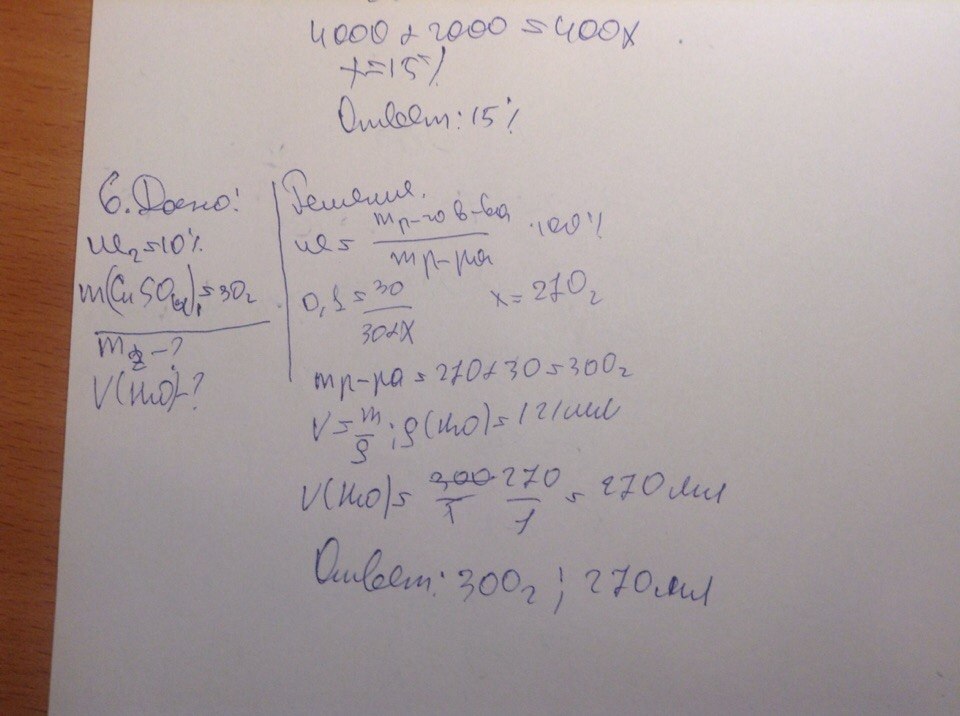 4000 + 2000 = 400x
x = 15%
Ответ: 15%
6. Дано:
ω₂ = 10%
m(CuSO₄)₁ = 30г
m₂ - ?
V(H₂O) - ?
Решение.
ω = m р-го в-ва / m р-ра · 100%
0,1 = 30 / 30+x x = 270г
m р-ра = 270 + 30 = 300г
V = m/ρ ; ρ(H₂O) = 1 г/мл
V(H₂O) = 300/1 270/1 = 270 мл
Ответ: 300г ; 270 мл